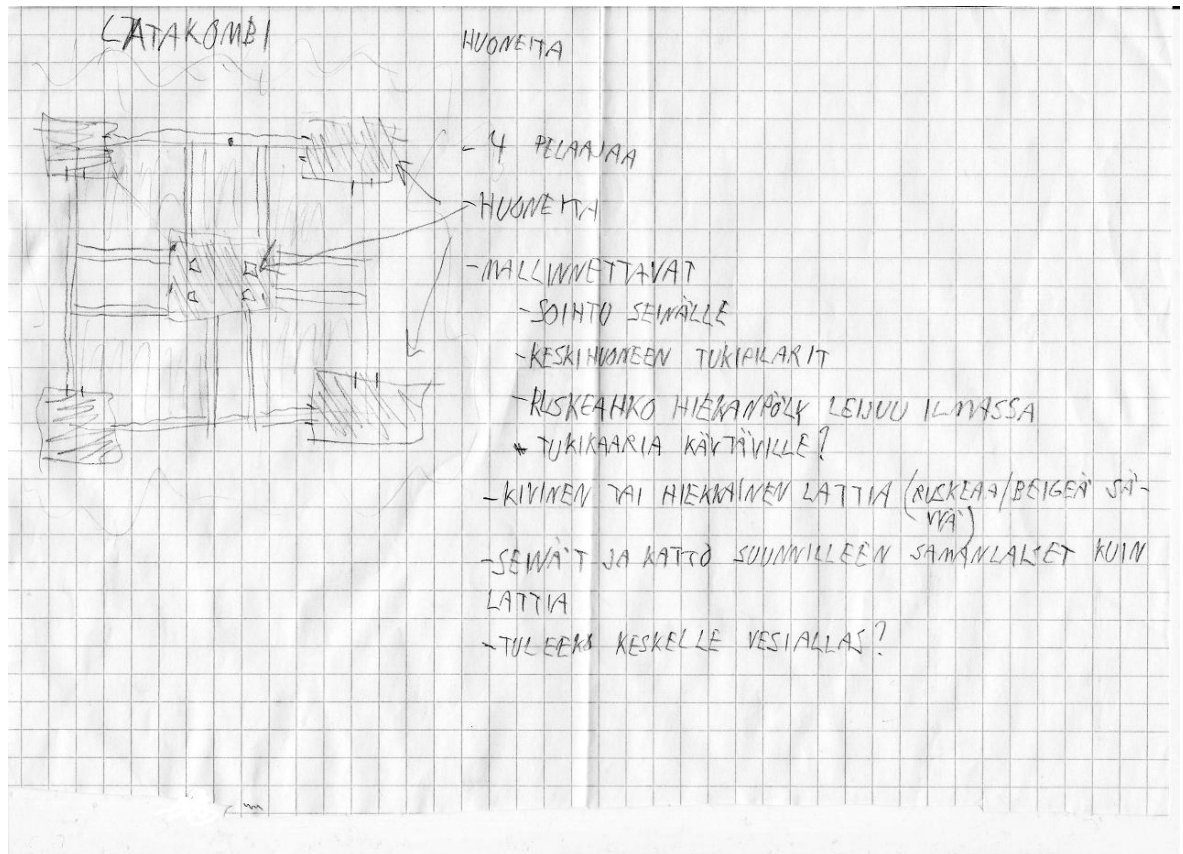 KATAKOMBI
HUONEITA
- 4 PELAAJAA
- HUONEITA
- MALLINNETTAVAT
- SOIHTU SEINÄLLE
- KESKIHUONEEN TUKIPILARIT
- RUSKEAHKO HIEKANPÖLY LEIJUU ILMASSA
* TUKIKAARIA KÄYTÄVILLE?
- KIVINEN TAI HIEKKAINEN LATTIA (RUSKEAA/BEIGEÄ SÄ-
VYÄ)
- SEINÄT JA KATTO SUUNNILLEEN SAMANLAISET KUIN
LATTIA
- TULEEKO KESKELLE VESIALLAS?